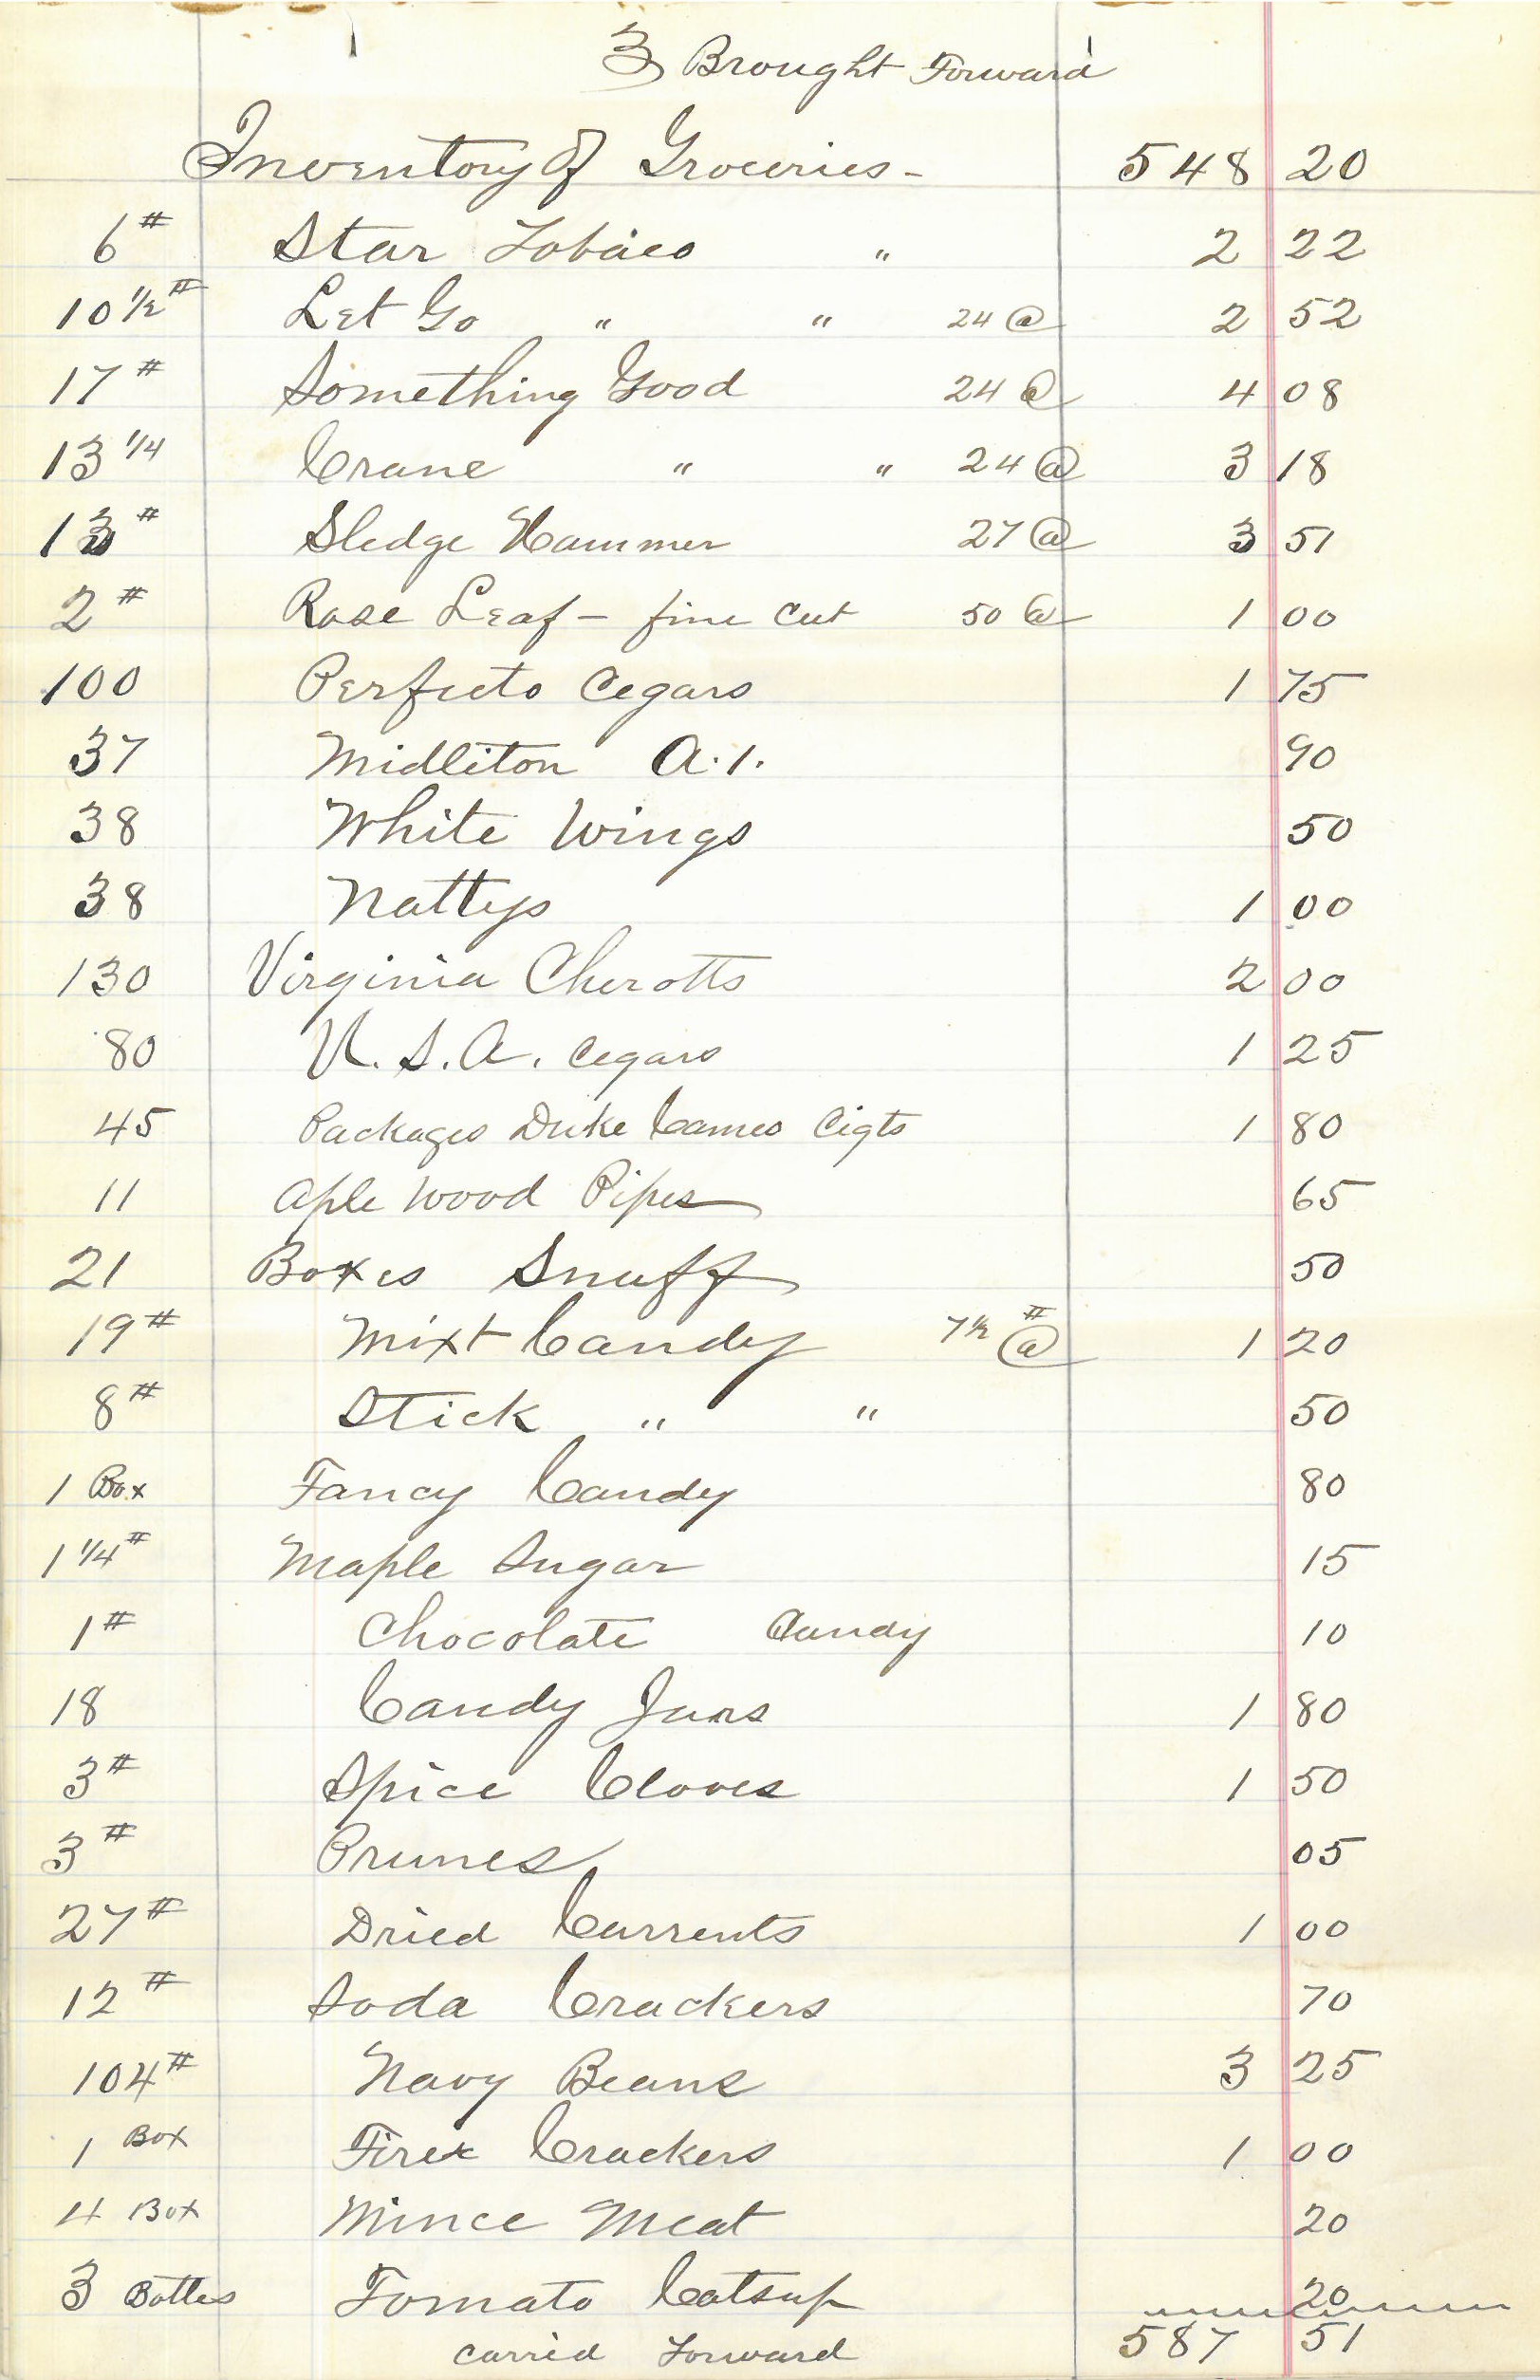 3 Brought Forward
Inventory of Groceries - 548 20
6# Star Tobaco " 2 22
10 1/2# Let Go " " 24 @ 2 52
17# Something Good 24 @ 4 08
13 1/4 Crane " " 24 @ 3 18
13# Sledge Hammer 27 @ 3 51
2# Rose Leaf - fine cut 50 @ 1 00
100 Perfecto Cegars 1 75
37 Midliton A.1. 90
38 White Wings 50
38 Nattys 1 00
130 Virginia Cherotts 2 00
80 U.S.A. Cegars 1 25
45 Packages Duke Cameo Cigts 1 80
11 Aple Wood Pipes 65
21 Boxes Snuff 50
19# Mixt Candy 7 1/2 # @ 1 20
8# Stick " " 50
1 Box Fancy Candy 80
1 1/4# Maple Sugar 15
1# Chocolate Candy 10
18 Candy Jars 1 80
3# Spice Cloves 1 50
3# Prunes 05
27# Dried Currents 1 00
12# Soda Crackers 70
104# Navy Beans 3 25
1 Box Fire Crackers 1 00
4 Box Mince Meat 20
3 Bottles Tomato Catsup 20
carried Forward 587 51